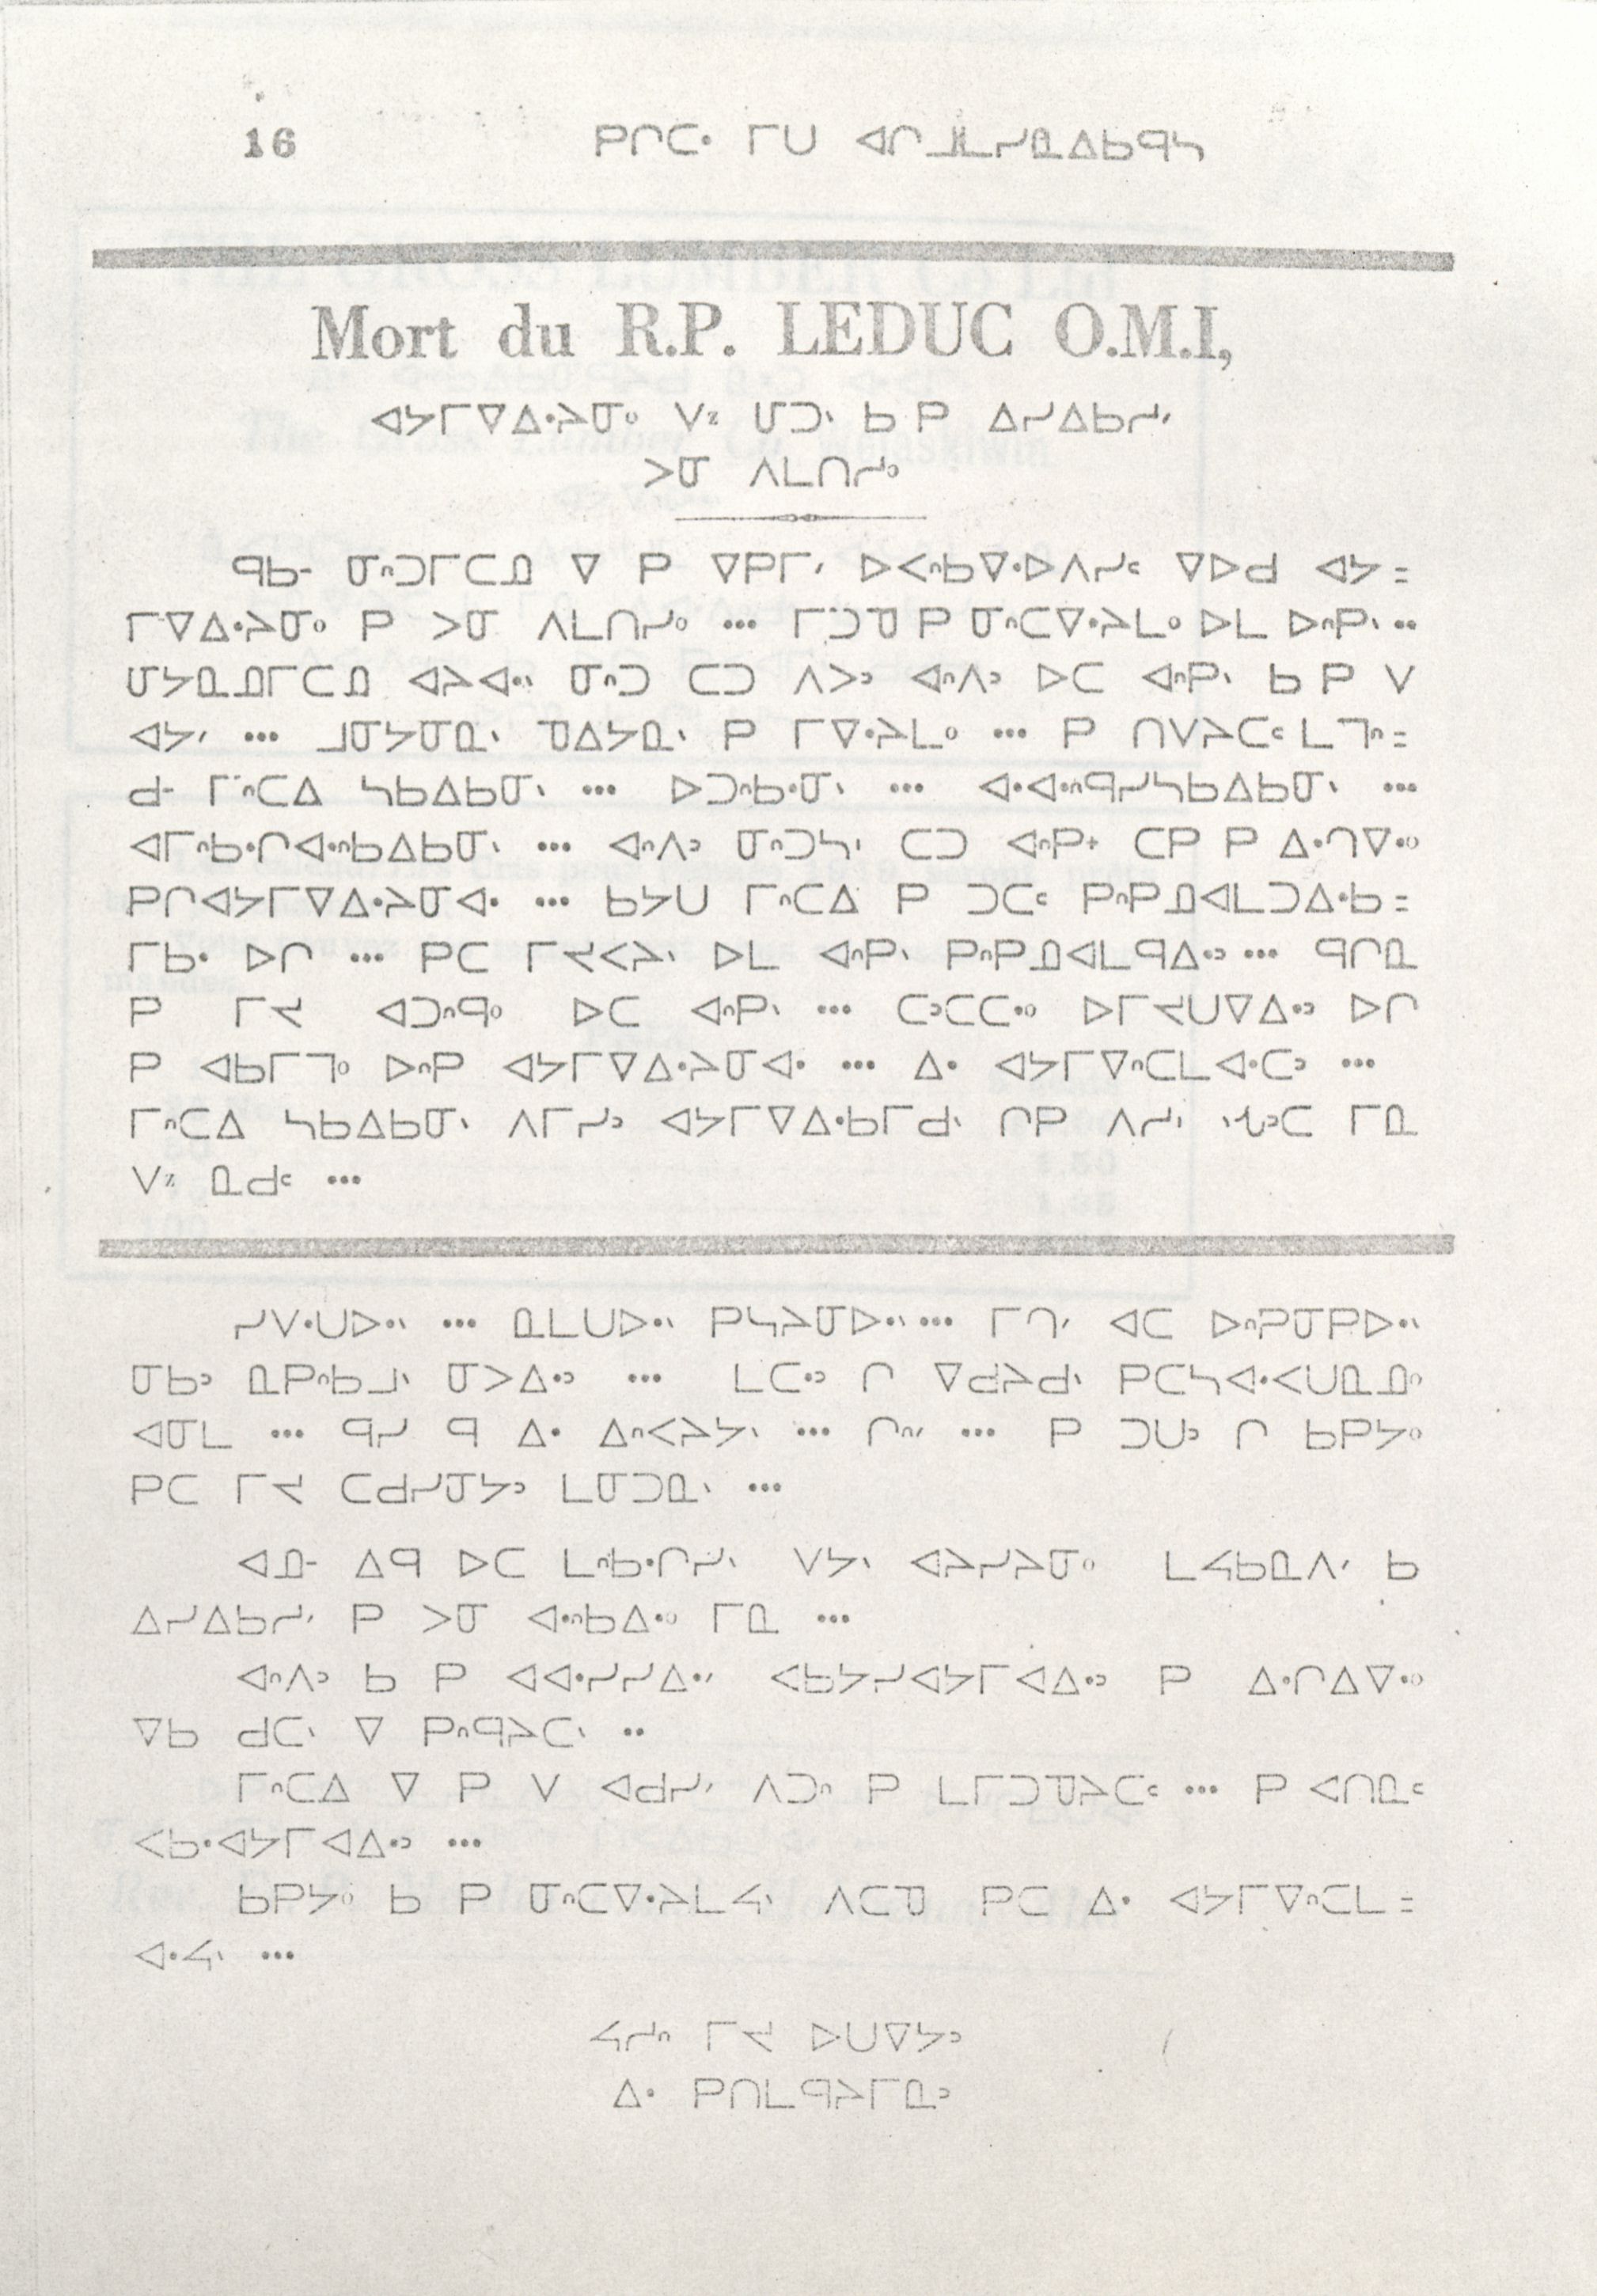 16 ᑭᒋᑕᐧ ᒥᑌ ᐊᒋᒧᒪᓯᓇᐃᑲᑫᓴ
Mort du R.P. LEDUC O.M.I,
ᐊᔭᒥᐁᐃᐧᔨᓂᐤ ᐯᶻ ᓓᑐᐠ ᑲ ᑭ ᐃᓯᐃᑲᓱᐟ
ᐳᓂ ᐱᒪᑎᓯᐤ
ᑫᑲ- ᓂᐢᑐᒥᑕᓄ ᐁ ᑭ ᐁᑭᒥᐟ ᐅᐸᐢᑲᐁᐧᐅᐱᓯᒼ ᐁᐅᑯ ᐊᔭ =
ᒥᐁᐃᐧᔨᓂᐤ ᑭ ᐳᓂ ᐱᒪᑎᓯᐤ ... ᒥᑐᓀ ᑭ ᓂᐢᑕᐁᐧᔨᒪᐤ ᐅᒪ ᐅᐢᑭᐠ ..
ᓀᔭᓇᓄᒥᑕᓄ ᐊᔨᐊᐧᐠ ᓂᐢᑐ ᑕᑐ ᐱᐳᐣ ᐊᐢᐱᐣ ᐅᑕ ᐊᐢᑭᐠ ᑲ ᑭ ᐯ
ᐊᔭᐟ ... ᒧᓂᔭᓂᓇᐠ ᓀᐃᔭᓇᐠ ᑭ ᒥᐁᐧᔨᒪᐤ ... ᑭ ᑎᐯᔨᑕᒼ ᒪᒣᐢ =
ᑯ- ᒥᐢᑕᐃ ᓴᑲᐃᑲᓂᐠ ... ᐅᑐᐢᑲᐧᓂᐠ ... ᐊᐧᐊᐧᐢᑫᓯᓴᑲᐃᑲᓂᐠ ...
ᐊᒥᐢᑲᐧᒋᐊᐧᐢᑲᐃᑲᓂᐠ ... ᐊᐢᐱᐣ ᓂᐢᑐᓴᑊ ᑕᑐ ᐊᐢᑭᐩ ᑕᑭ ᑭ ᐃᐧᒉᐁᐧᐤ
ᑭᒋᐊᔭᒥᐁᐃᐧᔨᓂᐊᐧ ... ᑲᔭᑌ ᒥᐢᑕᐃ ᑭ ᑐᑕᒼ ᑭᐢᑭᓄᐊᒪᑐᐃᐧᑲ =
ᒥᑲᐧ ᐅᒋ ... ᑭᑕ ᒥᔪᐸᔨᐠ ᐅᒪ ᐊᐢᑭᐠ ᑭᐢᑭᓄᐊᒪᑫᐃᐧᐣ ... ᑫᒋᓇ
ᑭ ᒥᔪ ᐊᑐᐢᑫᐤ ᐅᑕ ᐊᐢᑭᐠ ... ᑕᐣᑕᑕᐧᐤ ᐅᒥᔪᑌᐁᐃᐧᐣ ᐅᒋ
ᑭ ᐊᑲᒥᒣᐤ ᐅᐢᑭ ᐊᔭᒥᐁᐃᐧᔨᓂᐊᐧ ... ᐃᐧ ᐊᔭᒥᐁᐢᑕᒪᐊᐧᑕᐣ ...
ᒥᐢᑕᐃ ᓴᑲᐃᑲᓂᐠ ᐱᒥᓯᐣ ᐊᔭᒥᐁᐃᐧᑲᒥᑯᐠ ᒋᑭ ᐱᓱᑊ ᓭᐣᑕ ᒥᓇ
ᐯᶻ ᓇᑯᒼ ...
ᓯᐯᐧᑌᐅᐧᐠ ... ᓇᒪᑌᐅᐧᐠ ᑭᓴᔨᓂᐅᐧᐠ ... ᒥᒉᐟ ᐊᑕ ᐅᐢᑭᓂᑭᐅᐧᐠ
ᓂᑲᐣ ᓇᑭᐢᑲᒧᐠ ᓂᐳᐃᐧᐣ ... ᒪᑕᐧᐣ ᒋ ᐁᑯᔨᑯᐠ ᑭᑕᓴᐊᐧᐸᑌᓇᓄᐤ
ᐊᓂᒪ ... ᑫᓯ ᑫ ᐃᐧ ᐃᐢᐸᔨᔭᐠ ... ᒋᐢᐟ ... ᑭ ᑐᑌᐣ ᒋ ᑲᑭᔭᐤ
ᑭᑕ ᒥᔪ ᑕᑯᓯᓂᔭᐣ ᒪᓂᑐᓇᐠ ...
ᐊᓄ- ᐃᑫ ᐅᑕ ᒪᐢᑲᐧᒋᓯᐠ ᐯᔭᐠ ᐊᔨᓯᔨᓂᐤ ᒪᔦᑲᓇᐱᐟ ᑲ
ᐃᓯᐃᑲᓱᐟ ᑭ ᐳᓂ ᐊᐧᐢᑲᐃᐧᐤ ᒥᓇ ...
ᐊᐢᐱᐣ ᑲ ᑭ ᐊᐊᐧᓯᓯᐃᐧᐟ ᐸᑲᔭᓯᐊᔭᒥᐊᐃᐧᐣ ᑭ ᐃᐧᒋᐃᐁᐧᐤ
ᐁᑲ ᑯᑕᐠ ᐁ ᑭᐢᑫᔨᑕᐠ ..
ᒥᐢᑕᐃ ᐁ ᑭ ᐯ ᐊᑯᓯᐟ ᐱᑐᐢ ᑭ ᒪᒥᑐᓀᔨᑕᒼ ... ᑭ ᐸᑎᓇᒼ
ᐸᑲᐧᐊᔭᒥᐊᐃᐧᐣ ...
ᑲᑭᔭᐤ ᑲ ᑭ ᓂᐢᑕᐁᐧᔨᒪᔦᐠ ᐱᑕᓀ ᑭᑕ ᐃᐧ ᐊᔭᒥᐁᐢᑕᒪ =
ᐊᐧᔦᐠ ...
ᔦᓱᐢ ᒥᔪ ᐅᑌᐁᔭᐣ
ᐃᐧ ᑭᑎᒪᑫᔨᒥᓇᐣ